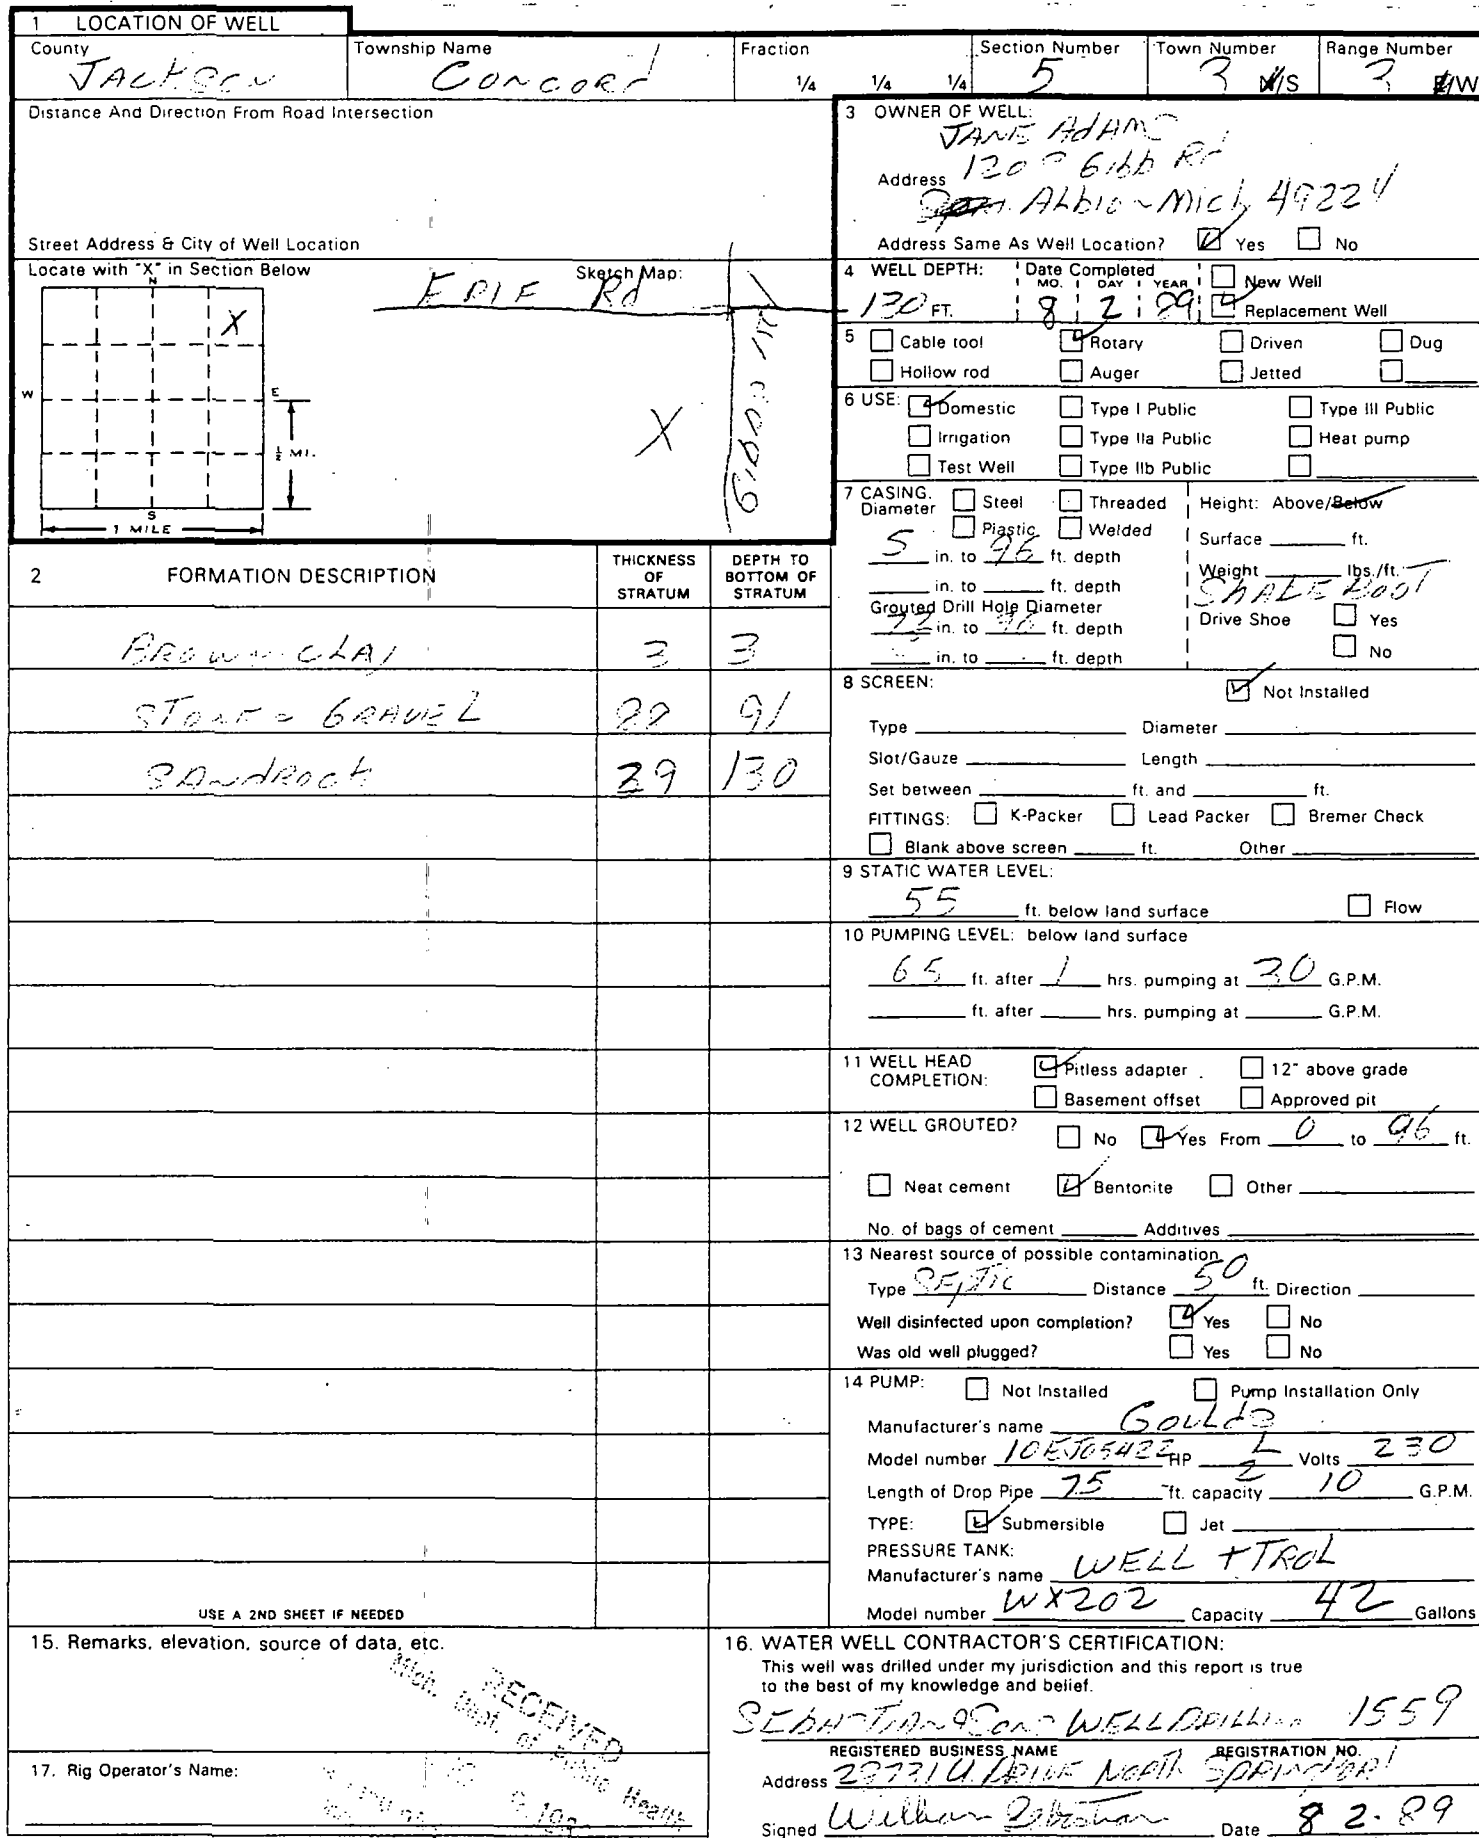 1 LOCATION OF WELL
County JACKSON
Township Name CONCORD
Fraction 1/4 1/4 1/4
Section Number 5
Town Number 3 N/S
Range Number 3 E/W
Distance And Direction From Road Intersection
Street Address & City of Well Location
Locate with "X" in Section Below
Sketch Map:
N
X
W
E
1/2 MI.
S
1 MILE
ERIE Rd
X
3 OWNER OF WELL:
JANE ADAMS
Address Gibb Rd
Albion Mich 49224
Address Same As Well Location? Yes No
4 WELL DEPTH: 130 FT.
Date Completed MO. DAY YEAR 8 2 89
New Well
Replacement Well
5 Cable tool Rotary Driven Dug
Hollow rod Auger Jetted
6 USE: Domestic Type I Public Type III Public
Irrigation Type IIa Public Heat pump
Test Well Type IIb Public
7 CASING. Steel Threaded Height: Above/Below
Diameter Plastic Welded
Surface ft.
5 in. to 96 ft. depth
Weight lbs./ft.
in. to ft. depth
SHALE BOOT
Grouted Drill Hole Diameter
in. to 96 ft. depth
Drive Shoe Yes
in. to ft. depth
No
2 FORMATION DESCRIPTION
THICKNESS OF STRATUM
DEPTH TO BOTTOM OF STRATUM
BROWN CLAY 3 3
STONE - GRAVEL 88 91
SANDROCK 39 130
USE A 2ND SHEET IF NEEDED
8 SCREEN: Not Installed
Type Diameter
Slot/Gauze Length
Set between ft. and ft.
FITTINGS: K-Packer Lead Packer Bremer Check
Blank above screen ft. Other
9 STATIC WATER LEVEL:
55 ft. below land surface Flow
10 PUMPING LEVEL: below land surface
65 ft. after 1 hrs. pumping at 30 G.P.M.
ft. after hrs. pumping at G.P.M.
11 WELL HEAD COMPLETION: Pitless adapter 12" above grade
Basement offset Approved pit
12 WELL GROUTED? No Yes From 0 to 96 ft.
Neat cement Bentonite Other
No. of bags of cement Additives
13 Nearest source of possible contamination
Type SEPTIC Distance 50 ft. Direction
Well disinfected upon completion? Yes No
Was old well plugged? Yes No
14 PUMP: Not Installed Pump Installation Only
Manufacturer's name GOULDS
Model number 10EJ05422 HP 1/2 Volts 230
Length of Drop Pipe 75 ft. capacity 10 G.P.M.
TYPE: Submersible Jet
PRESSURE TANK:
Manufacturer's name WELL + TROL
Model number WX202 Capacity 42 Gallons
15. Remarks, elevation, source of data, etc.
RECEIVED
Mich. Dept. of Public Health
17. Rig Operator's Name:
16. WATER WELL CONTRACTOR'S CERTIFICATION:
This well was drilled under my jurisdiction and this report is true
to the best of my knowledge and belief.
SEBASTIAN & SONS WELL DRILLING 1559
REGISTERED BUSINESS NAME REGISTRATION NO.
Address DRIVE NORTH SPRINGPORT
Signed William Sebastian Date 8 2-89